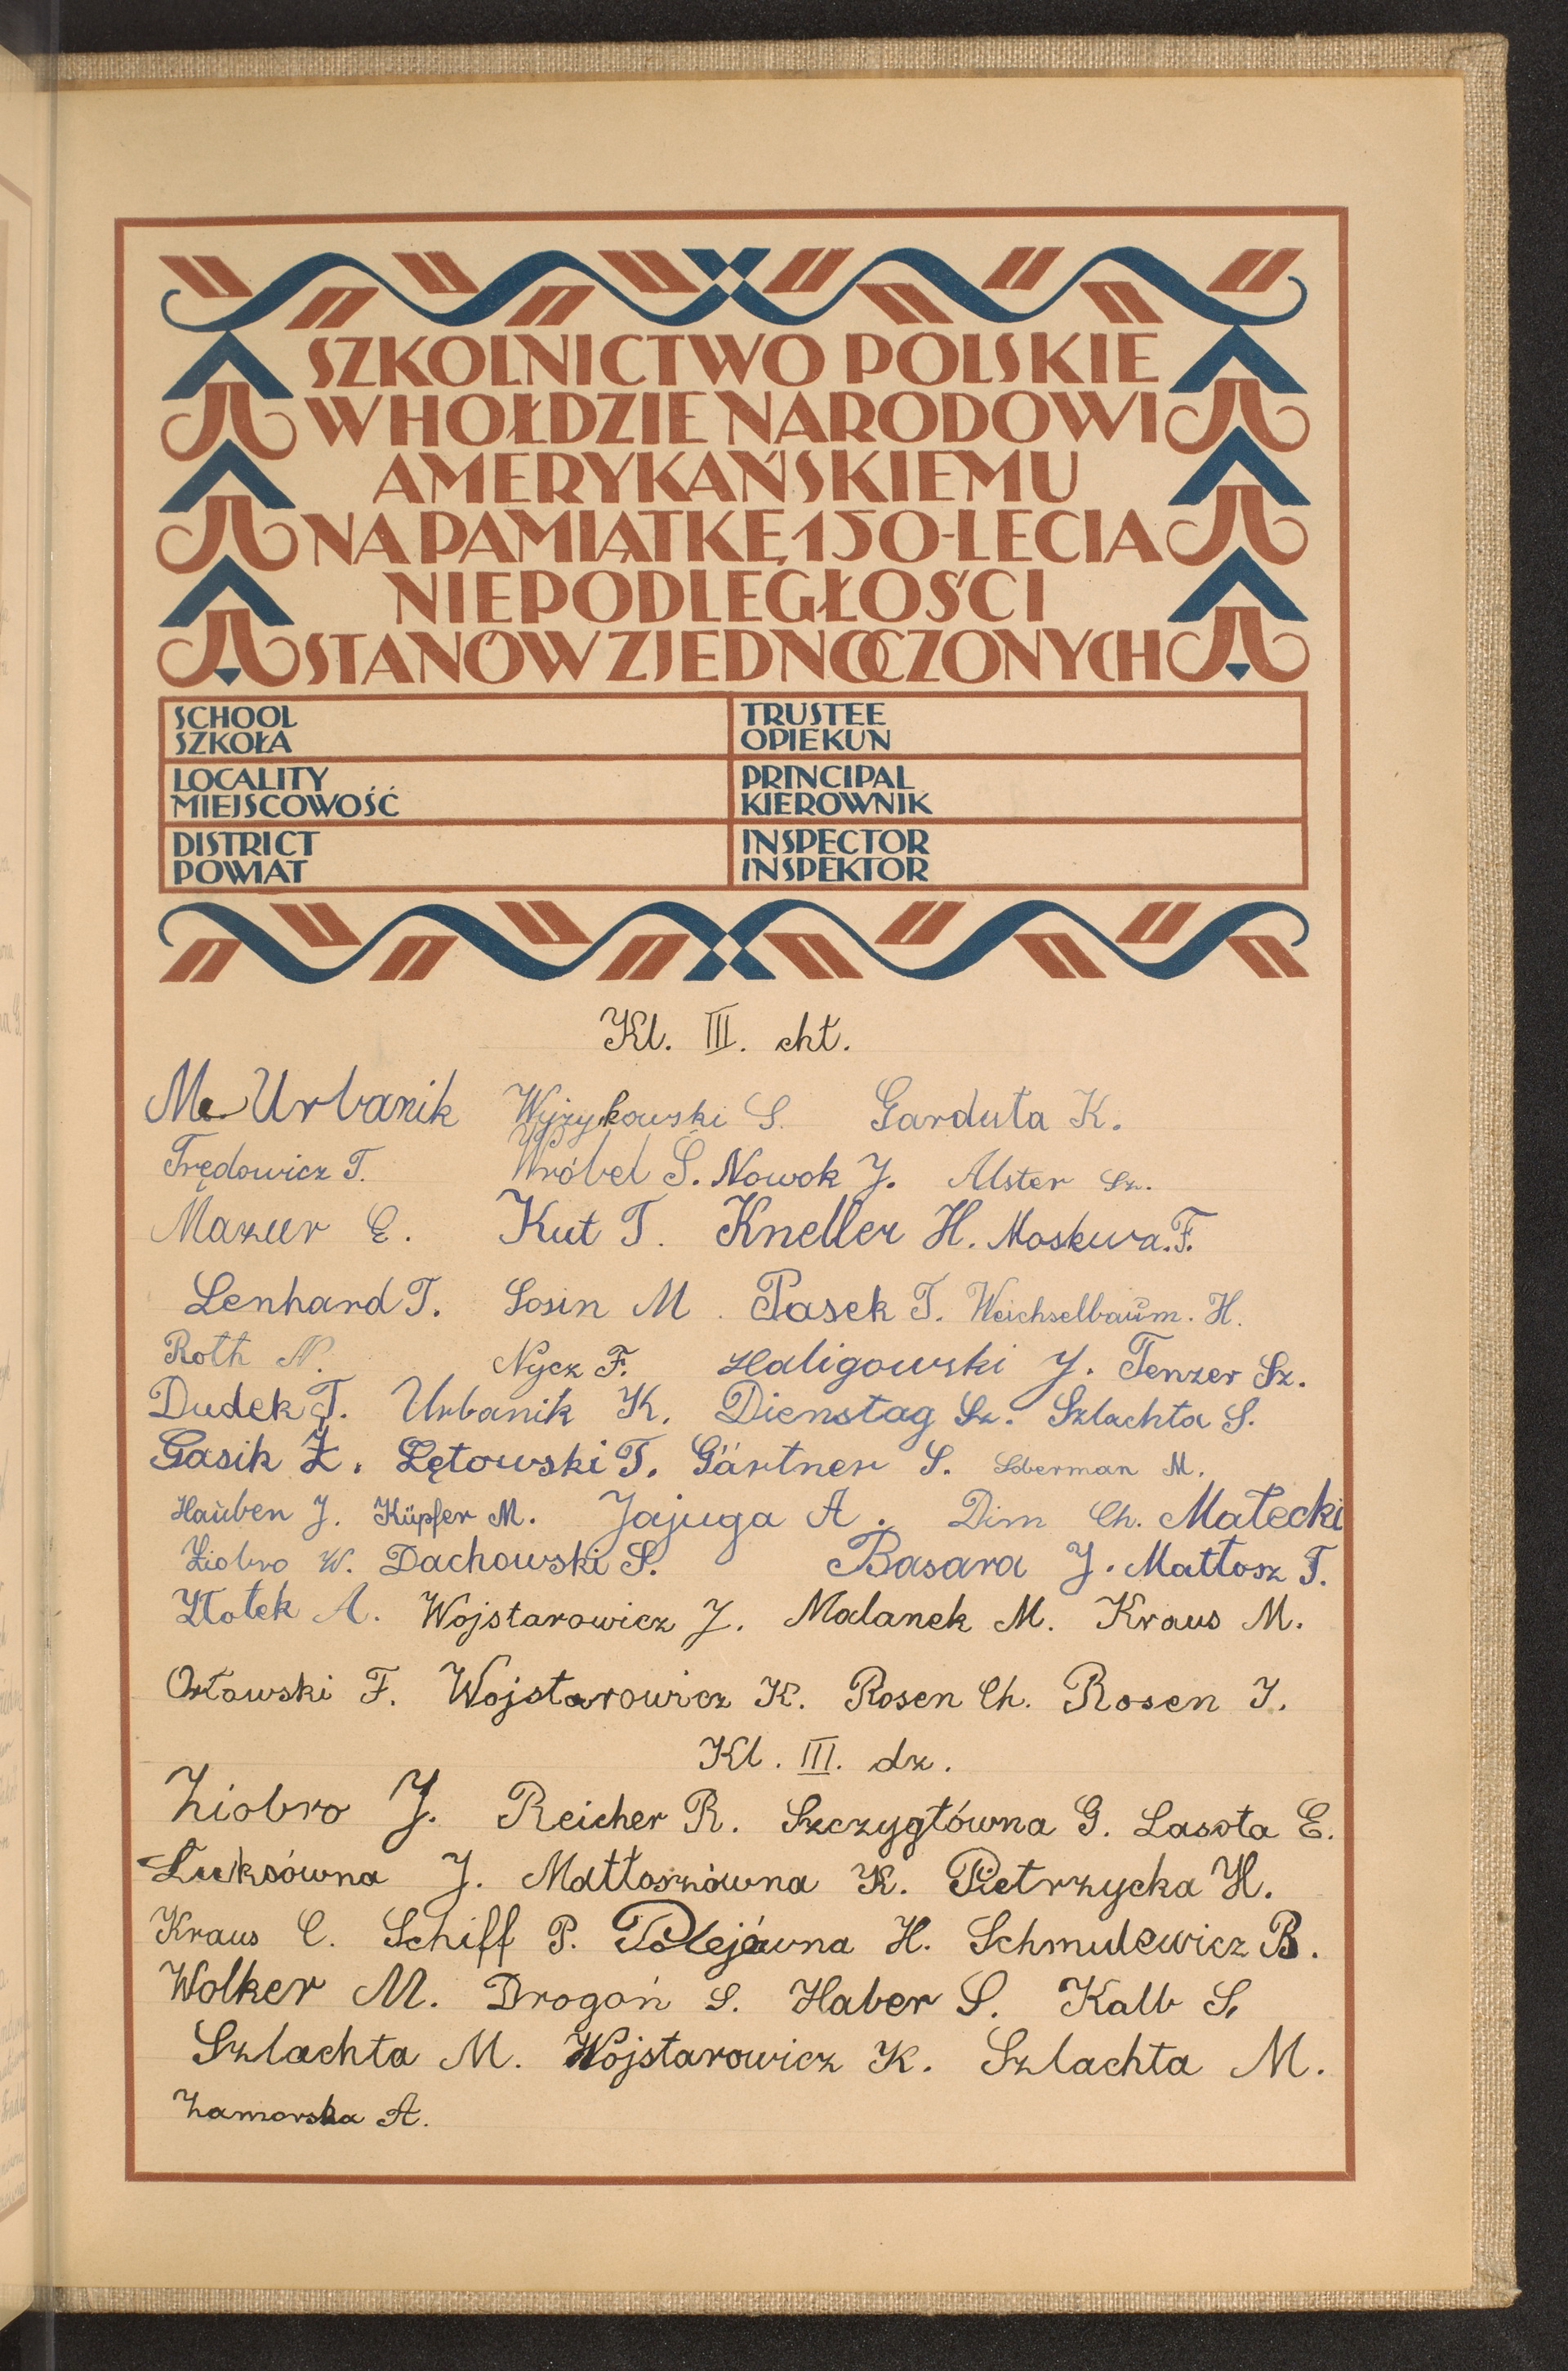 SZKOLNICTWO POLSKIE
W HOŁDZIE NARODOWI
AMERYKAŃSKIEMU
NA PAMIĄTKĘ 150-LECIA
NIEPODLEGŁOŚCI
STANÓW ZJEDNOCZONYCH
SCHOOL
SZKOŁA
TRUSTEE
OPIEKUN
LOCALITY
MIEJSCOWOŚĆ
PRINCIPAL
KIEROWNIK
DISTRICT
POWIAT
INSPECTOR
INSPEKTOR
Kl. III. chł.
M. Urbanik Wyżykowski S. Garduła K.
Trędowicz T. Wróbel S. Nowok J. Alster Sz.
Mazur E. Kut T. Kneller H. Moskwa. F.
Lenhard T. Sosin M. Pasek T. Weichselbaum. H.
Roth N. Nycz F. Haligowski J. Tenzer Sz.
Dudek T. Urbanik K. Dienstag Sz. Szlachta S.
Gasik Z. Łętowski T. Gärtner S. Loberman M.
Hauben J. Küpfer M. Jajuga A. Dim Ch. Małecki
Ziobro W. Dachowski S. Basara J. Matłosz T.
Złotek A. Wojstarowicz J. Malanek M. Kraus M.
Orłowski F. Wojstarowicz K. Rosen Ch. Rosen J.
Kl. III. dz.
Ziobro J. Reicher R. Szczygłówna G. Lasota E.
Luksówna J. Matłoszówna K. Pietrzycka H.
Kraus C. Schiff P. Polejówna H. Schmulewicz B.
Wolker M. Drogoń S. Haber S. Kalb S.
Szlachta M. Wojstarowicz K. Szlachta M.
Zamorska A.